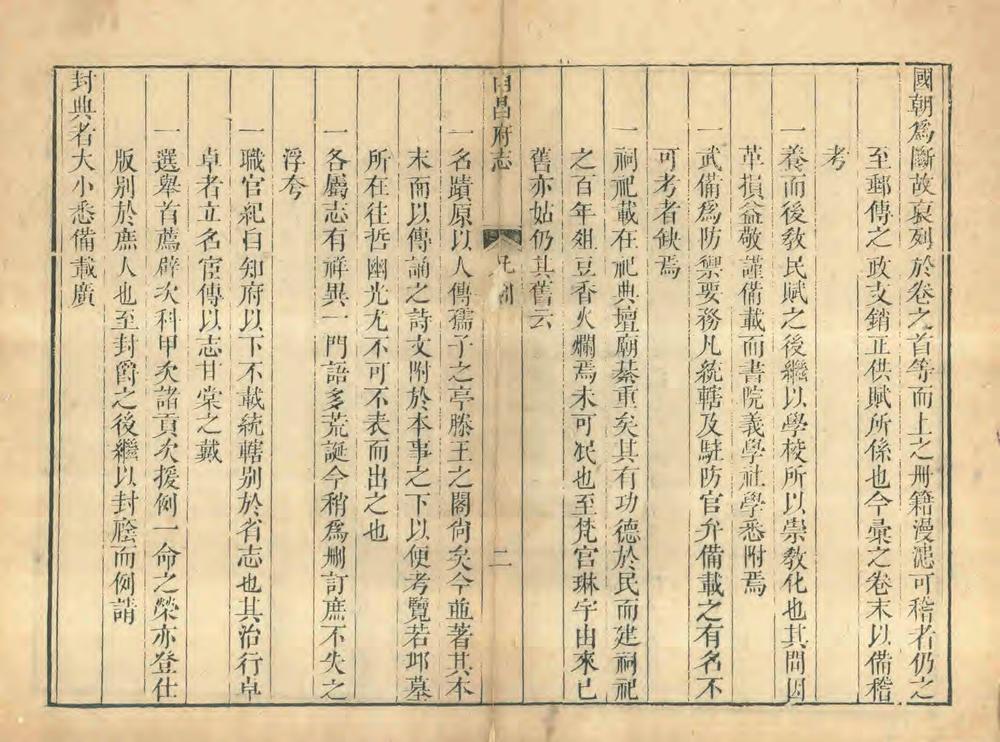 國朝爲斷故裒列於卷之首等而上之册籍漫漶可稽者仍之
至郵傳之政支銷正供賦所係也今彙之卷末以備稽
考
一養而後教民賦之後繼以學校所以崇教化也其間因
革損益敬謹備載而書院義學社學悉附焉
一武備爲防禦要務凡統轄及駐防官弁備載之有名不
可考者缺焉
一祠祀載在祀典壇廟綦重矣其有功德於民而建祠祀
之百年俎豆香火爛焉未可泯也至梵宫琳宇由來已
舊亦姑仍其舊云
南昌府志
凡例
二
一名蹟原以人傳孺子之亭滕王之閣尙矣今並著其本
末而以傳誦之詩文附於本事之下以便考覽若邱墓
所在往哲幽光尤不可不表而出之也
一各屬志有祥異一門語多荒誕今稍爲删訂庶不失之
浮夸
一職官紀自知府以下不載統轄别於省志也其治行卓
卓者立名宦傳以志甘棠之戴
一選舉首薦辟次科甲次諸貢次援例一命之榮亦登仕
版别於庶人也至封爵之後繼以封廕而例請
封典者大小悉備載廣